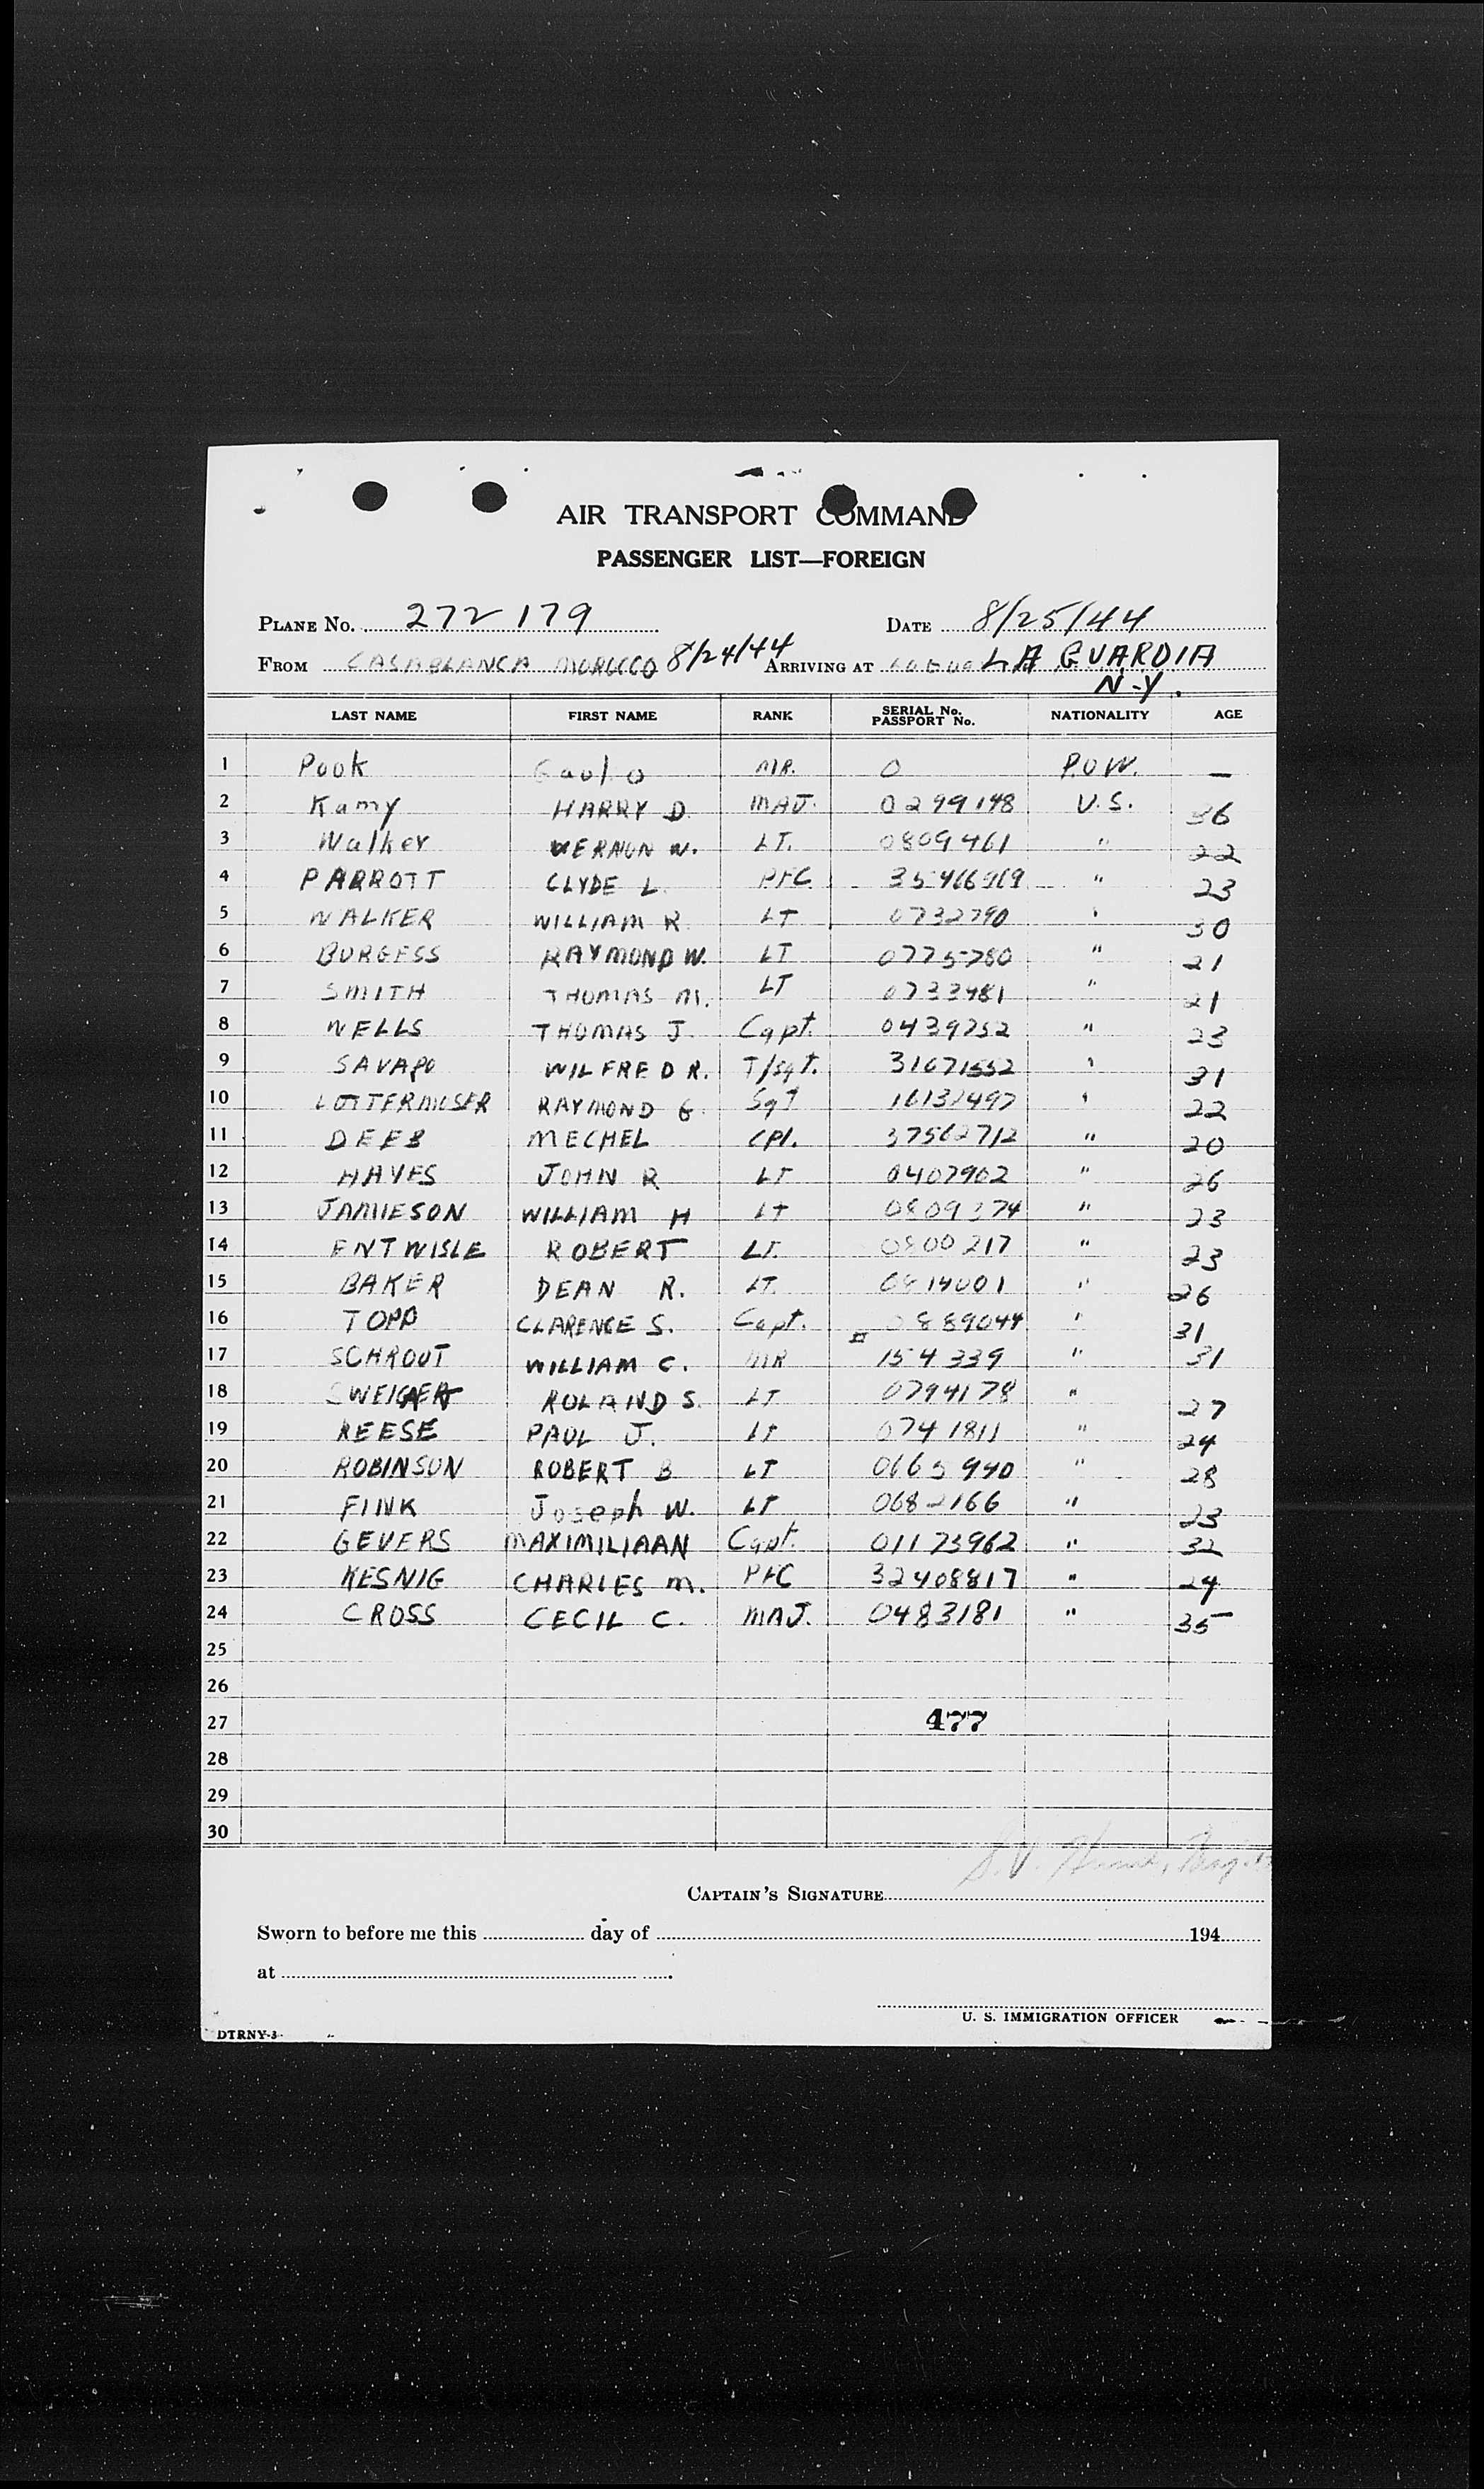 AIR TRANSPORT COMMAND
PASSENGER LIST—FOREIGN
PLANE No. 272179 DATE 8/25/44
FROM CASABLANCA MOROCCO 8/24/44 ARRIVING AT LA GUARDIA
N.Y.
LAST NAME FIRST NAME RANK SERIAL No. PASSPORT No. NATIONALITY AGE
1 Pook MR. O P.O.W. —
2 Kamy HARRY D. MAJ. 0299148 U.S. 36
3 Walker VERNON W. LT. 0809461 " 22
4 PARROTT CLYDE L. PFC 35466969 " 23
5 WALKER WILLIAM R. LT 0732790 " 30
6 BURGESS RAYMOND W. LT 0775780 " 21
7 SMITH THOMAS M. LT 0733481 " 21
8 WELLS THOMAS J. Capt. 0439752 " 23
9 SAVAPO WILFRED R. T/Sgt. 31671552 " 31
10 RAYMOND G. Sgt 16131497 " 22
11 DEEB MECHEL Cpl. 37562712 " 20
12 HAYES JOHN R LT 0407902 " 26
13 JAMIESON WILLIAM H LT 0809374 " 23
14 ENTWISLE ROBERT LT. 0800217 " 23
15 BAKER DEAN R. LT. 0814001 " 26
16 TOPP CLARENCE S. Capt. 0889044 " 31
17 SCHROUT WILLIAM C. MR 154339 " 31
18 SWEIGERT ROLAND S. LT 0794178 " 27
19 REESE PAUL J. LT 0741811 " 24
20 ROBINSON ROBERT B LT 0665940 " 28
21 FINK Joseph W. LT 0682166 " 23
22 GEVERS MAXIMILIAAN Capt. 01173962 " 32
23 KESNIG CHARLES M. PFC 32408817 " 24
24 CROSS CECIL C. MAJ. 0483181 " 35
25
26
27 477
28
29
30
CAPTAIN'S SIGNATURE
Sworn to before me this day of 194
at
U. S. IMMIGRATION OFFICER
DTRNY-3